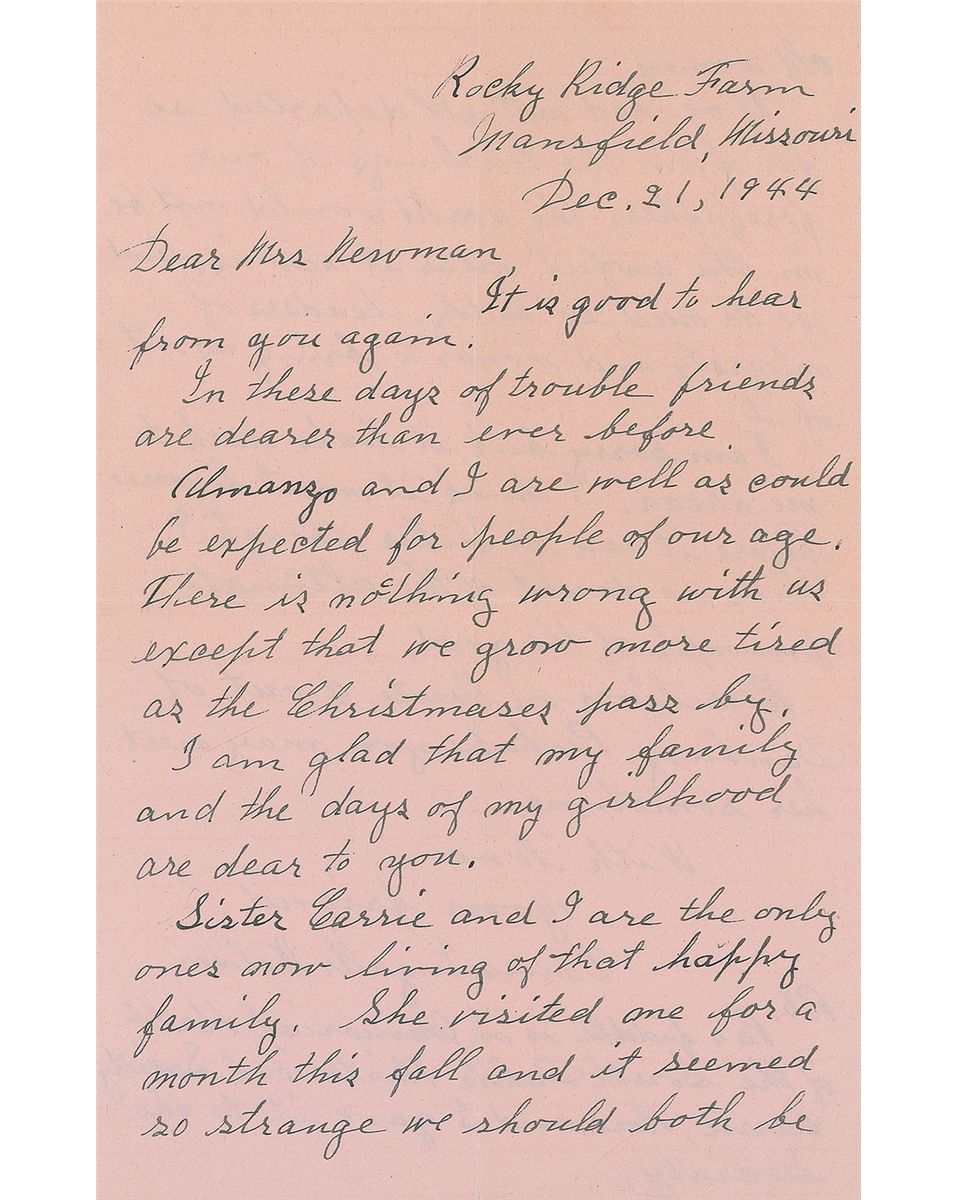 Rocky Ridge Farm
Mansfield, Missouri
Dec. 21, 1944
Dear Mrs Newman,
It is good to hear
from you again.
In these days of trouble friends
are dearer than ever before.
Almanzo and I are well as could
be expected for people of our age.
There is nothing wrong with us
except that we grow more tired
as the Christmases pass by.
I am glad that my family
and the days of my girlhood
are dear to you.
Sister Carrie and I are the only
ones now living of that happy
family. She visited me for a
month this fall and it seemed
so strange we should both be